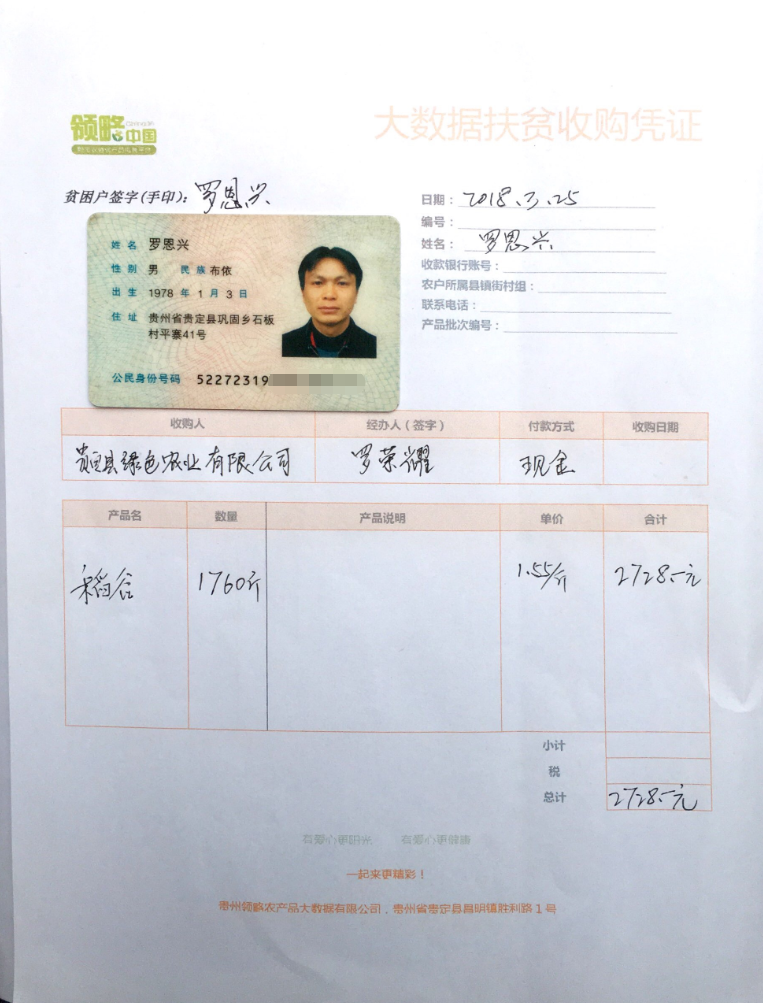 领略中国
大数据扶贫收购凭证
贫困户签字(手印): 罗恩兴
日期: 2018.3.25
编号:
姓名: 罗恩兴
收款银行账号:
农户所属县镇街村组:
联系电话:
产品批次编号:
姓名 罗恩兴
性别 男 民族 布依
出生 1978 年 1 月 3 日
住址 贵州省贵定县巩固乡石板
村平寨41号
公民身份号码 52272319
收购人 经办人(签字) 付款方式 收购日期
贵定县绿色农业有限公司 罗荣耀 现金
产品名 数量 产品说明 单价 合计
稻谷 1760斤 1.55/斤 2728.-元
小计
税
总计 2728.-元
有爱心更阳光 有爱心更健康
一起来更精彩!
贵州领略农产品大数据有限公司,贵州省贵定县昌明镇胜利路1号